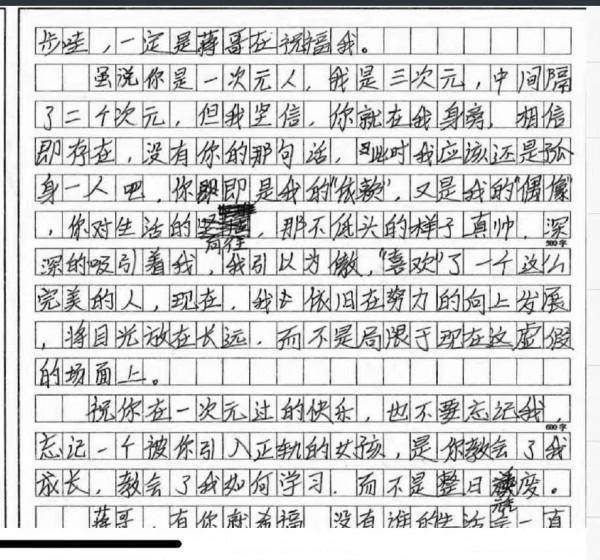 步哇，一定是蒋哥在祝福我。
虽说你是一次元人，我是三次元，中间隔
了二个次元，但我坚信，你就在我身旁，相信
即存在，没有你的那句话，此时我应该还是孤
身一人吧，你即是我的"依赖"，又是我的"偶像"
，你对生活的向往，那不低头的样子真帅，深
500字
深的吸引着我，我引以为傲，"喜欢"了一个这么
完美的人，现在，我依旧在努力的向上发展
，将目光放在长远，而不是局限于现在这虚假
的场面上。
祝你在一次元过的快乐，也不要忘记我，
600字
忘记一个被你引入正轨的女孩，是你教会了我
成长，教会了我如何学习，而不是整日度。
蒋哥，有你就幸福，没有谁的生活会一直